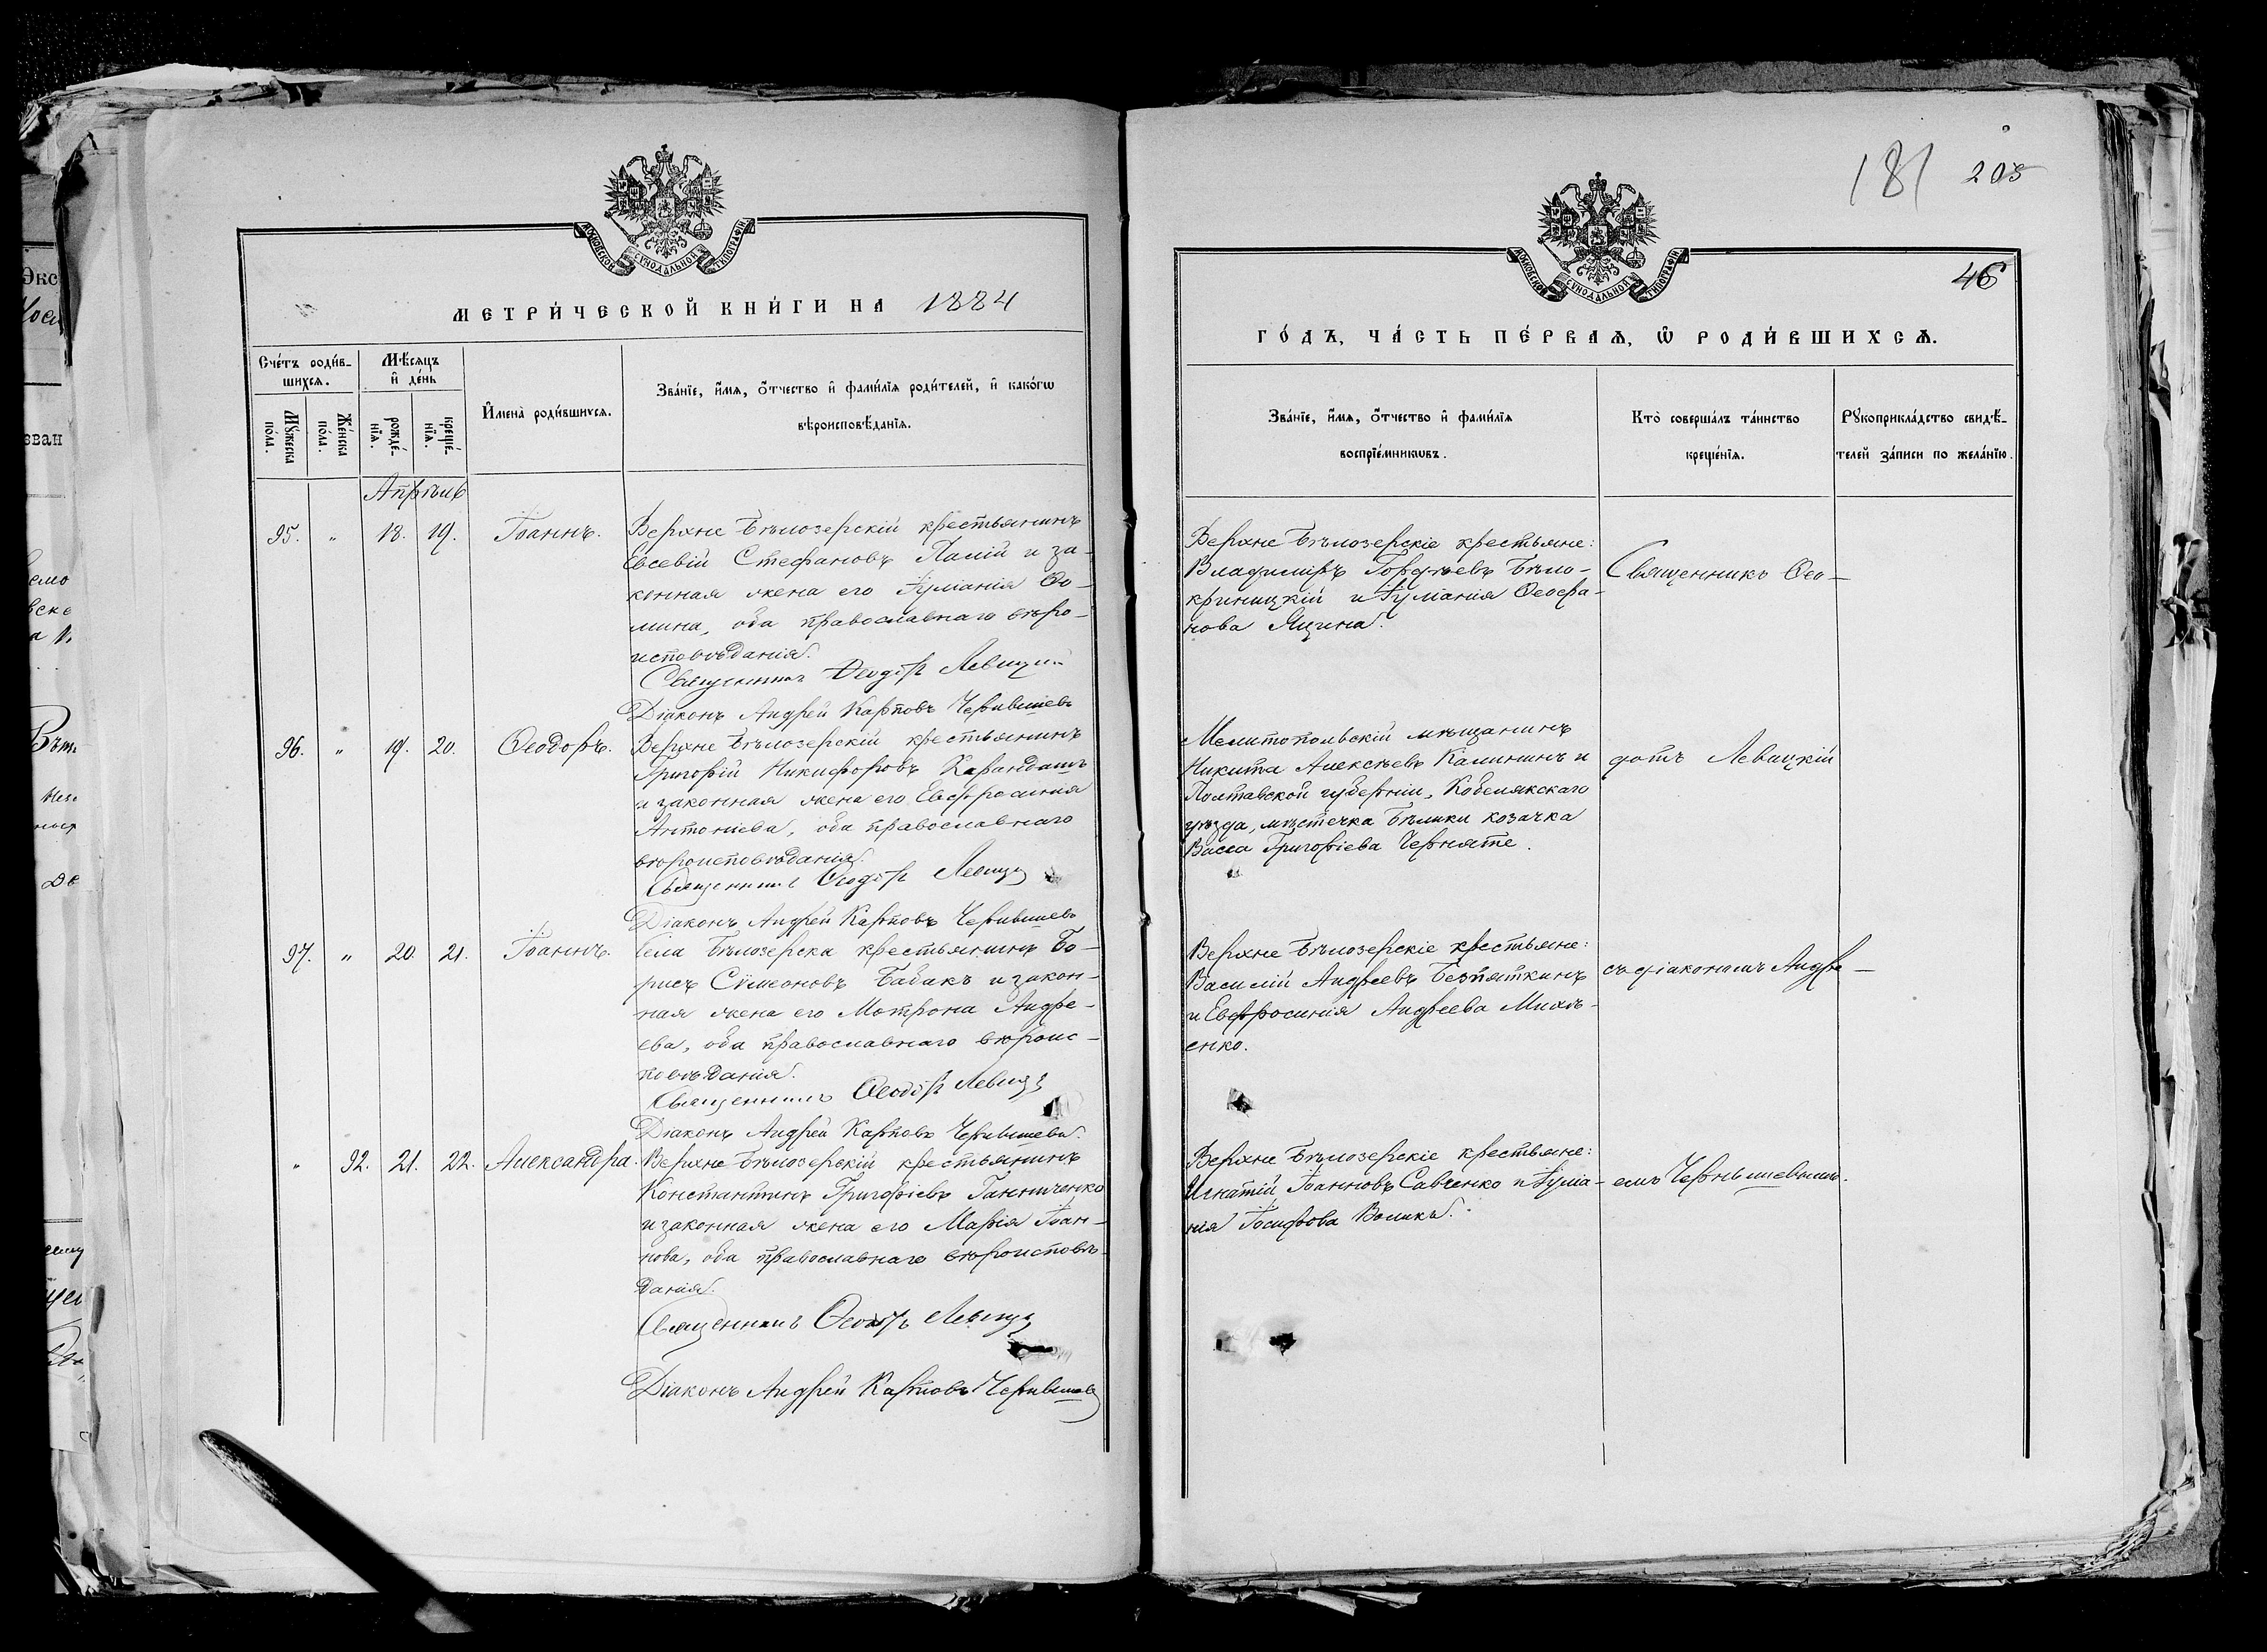 МОСКОВСКОЙ СѴНОДАЛЬНОЙ ТИПОГРАФІИ
МЕТРИ́ЧЕСКОЙ КНИ́ГИ НА 1884
Сче́тъ роди́в-
шихсѧ.
Мꙋ́жеска по́ла.
Же́нска по́ла.
Мѣ́сѧцъ
и҆ де́нь
рожде́-
нїѧ.
креще́-
нїѧ.
И҆мена̀ роди́вшихсѧ.
Зва́нїе, и҆́мѧ, ѻ҆́тчество и҆ фами́лїѧ роди́телей, и҆ како́гѡ
вѣроисповѣ́данїѧ.
Апрѣль
95. " 18. 19. Іоаннъ.
Верхне Бѣлозерскій крестьянинъ
Евсевій Стефановъ Палій и за-
конная жена его Іуліанія Ѳо-
мина, оба православнаго вѣро-
исповѣданія.
Священникъ Ѳеодоръ Левицкій
Діаконъ Андрей Карповъ Чернышевъ
96. " 19. 20. Ѳеодоръ.
Верхне Бѣлозерскій крестьянинъ
Григорій Никифоровъ Карандашъ
и законная жена его Евфросинія
Антоніева, оба православнаго
вѣроисповѣданія.
Священникъ Ѳеодоръ Левицкій
Діаконъ Андрей Карповъ Чернышевъ
97. " 20. 21. Іоаннъ.
Села Бѣлозерска крестьянинъ Бо-
рисъ Сѵмеоновъ Бабакъ и закон-
ная жена его Мотрона Андре-
ева, оба православнаго вѣроис-
повѣданія.
Священникъ Ѳеодоръ Левицкій
Діаконъ Андрей Карповъ Чернышевъ.
" 92. 21. 22. Александра.
Верхне Бѣлозерскій крестьянинъ
Константинъ Григоріевъ Ганниченко
и законная жена его Марія Іоан-
нова, оба православнаго вѣроисповѣ-
данія.
Священникъ Ѳеодоръ Левицкій
Діаконъ Андрей Карповъ Чернышевъ
181 205
46
МОСКОВСКОЙ СѴНОДАЛЬНОЙ ТИПОГРАФІИ
ГО́ДЪ, ЧА́СТЬ ПЕ́РВАѦ, Ѡ҆ РОДИ́ВШИХСѦ.
Зва́нїе, и҆́мѧ, ѻ҆́тчество и҆ фами́лїѧ
воспрїе́мникѡвъ.
Кто̀ соверша́лъ та́инство
креще́нїѧ.
Рꙋкоприкла́дство свидѣ́-
телей за́писи по жела́нїю.
Верхне Бѣлозерскіе крестьяне:
Владиміръ Гордѣевъ Бѣло-
криницкій и Іуліанія Ѳеофа-
нова Яцина.
Священникъ Ѳео-
Мелитопольскій мѣщанинъ
Никита Алексѣевъ Калининъ и
Полтавской губерніи, Кобелякскаго
уѣзда, мѣстечка Бѣлики козачка
Васса Григоріева Черняте.
дотъ Левицкій
Верхне Бѣлозерскіе крестьяне:
Василій Андреевъ Безпяткинъ
и Евфросинія Андреева Михѣ-
енко.
съ діакономъ Андре-
Верхне Бѣлозерскіе крестьяне:
Игнатій Іоанновъ Савченко и Іуліа-
нія Іосифова Воликъ.
емъ Чернышевымъ.